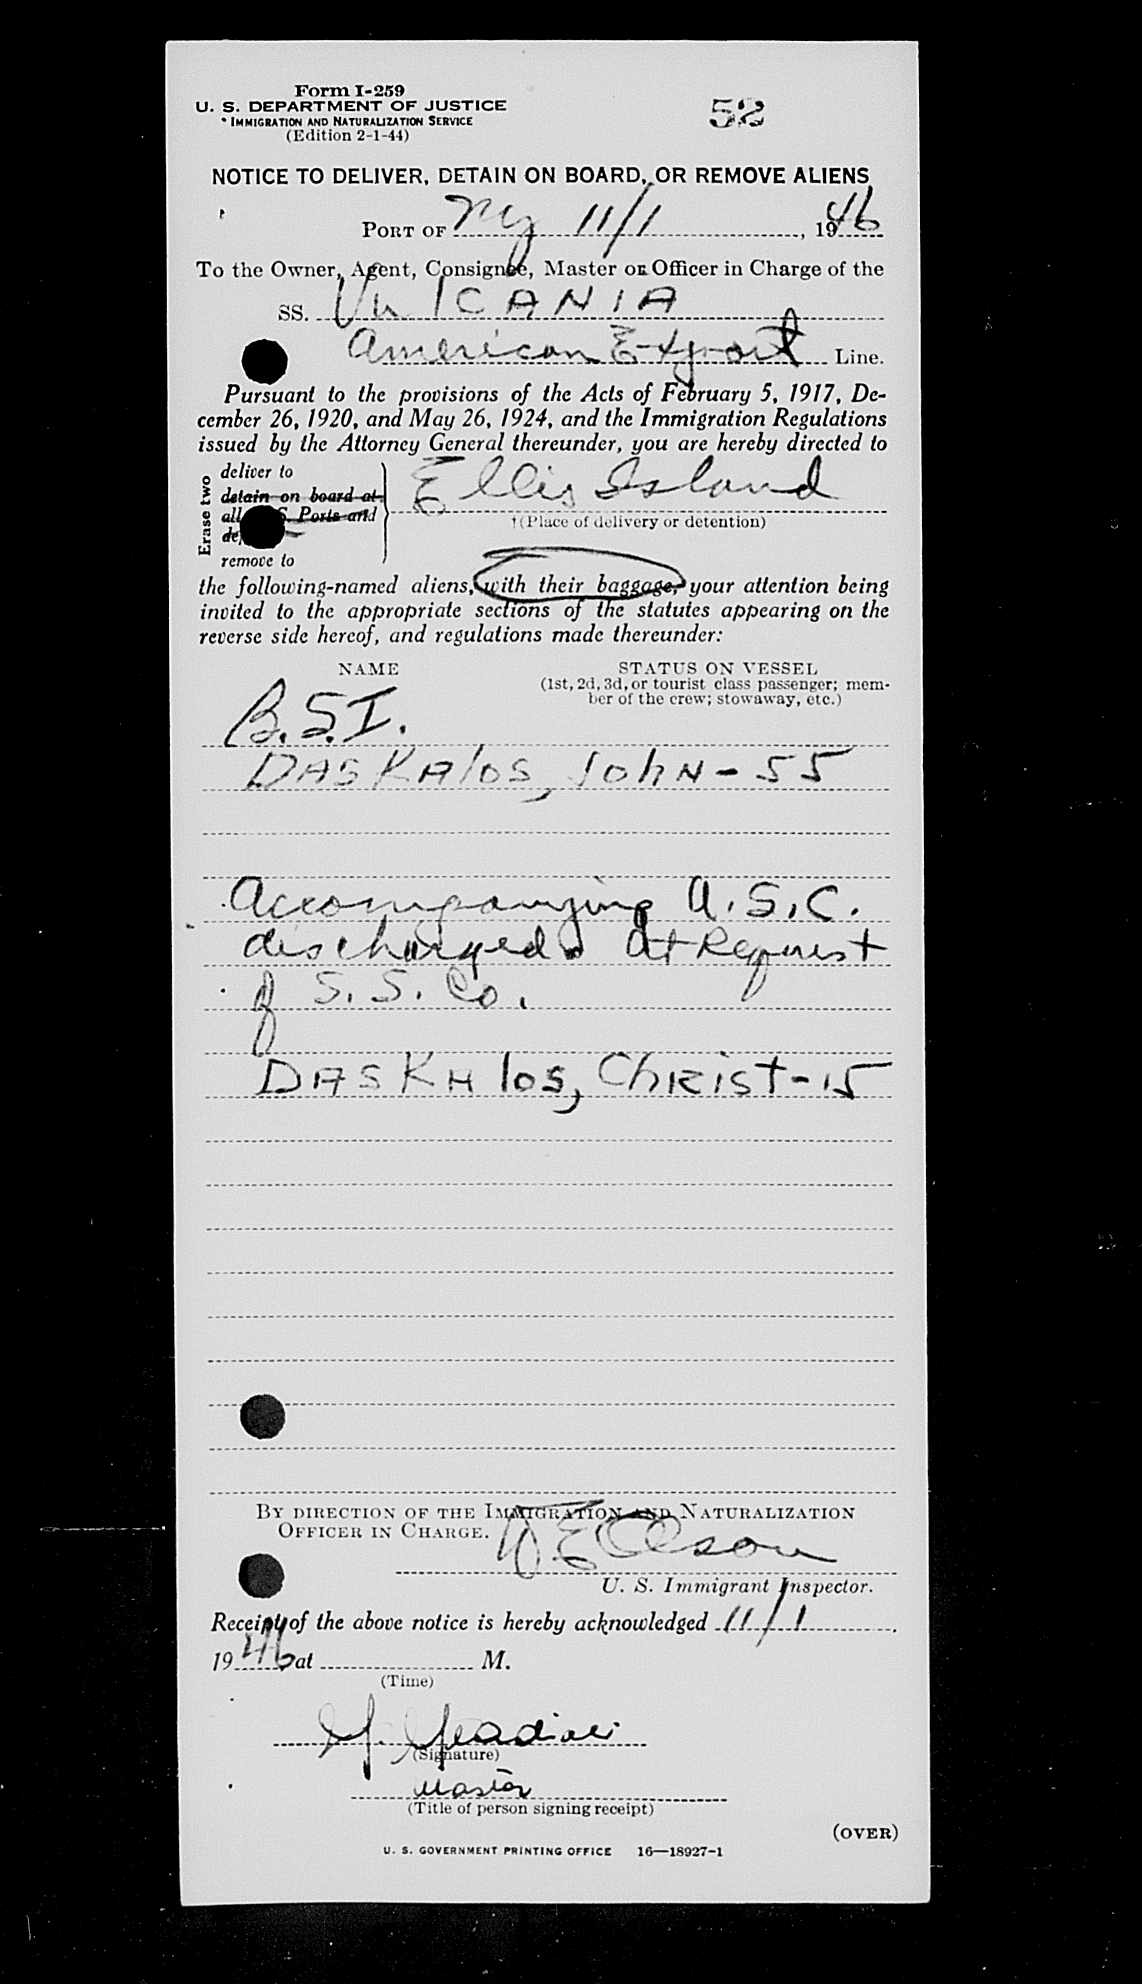 Form I-259
U. S. DEPARTMENT OF JUSTICE
IMMIGRATION AND NATURALIZATION SERVICE
(Edition 2-1-44)
52
NOTICE TO DELIVER, DETAIN ON BOARD, OR REMOVE ALIENS
PORT OF NY 11/1, 1946
To the Owner, Agent, Consignee, Master or Officer in Charge of the
SS. VulCANIA
American Export Line.
Pursuant to the provisions of the Acts of February 5, 1917, De-
cember 26, 1920, and May 26, 1924, and the Immigration Regulations
issued by the Attorney General thereunder, you are hereby directed to
Erase two
deliver to
detain on board at
all S. Ports and
remove to
Ellis Island
†(Place of delivery or detention)
the following-named aliens, with their baggage, your attention being
invited to the appropriate sections of the statutes appearing on the
reverse side hereof, and regulations made thereunder:
NAME
STATUS ON VESSEL
(1st, 2d, 3d, or tourist class passenger; mem-
ber of the crew; stowaway, etc.)
B.S.I.
DASKAlos, John - 55
Accompanying U.S.C.
discharged At Request
of S.S. Co.
DASKAlos, ChRist - 15
BY DIRECTION OF THE IMMIGRATION AND NATURALIZATION
OFFICER IN CHARGE.
Olson
U. S. Immigrant Inspector.
Receipt of the above notice is hereby acknowledged 11/1,
1946 at M.
(Time)
(Signature)
Master
(Title of person signing receipt)
(OVER)
U. S. GOVERNMENT PRINTING OFFICE 16—18927-1